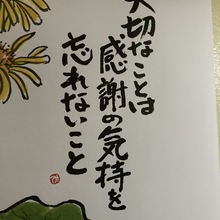 大切なことは
感謝の気持を
忘れないこと